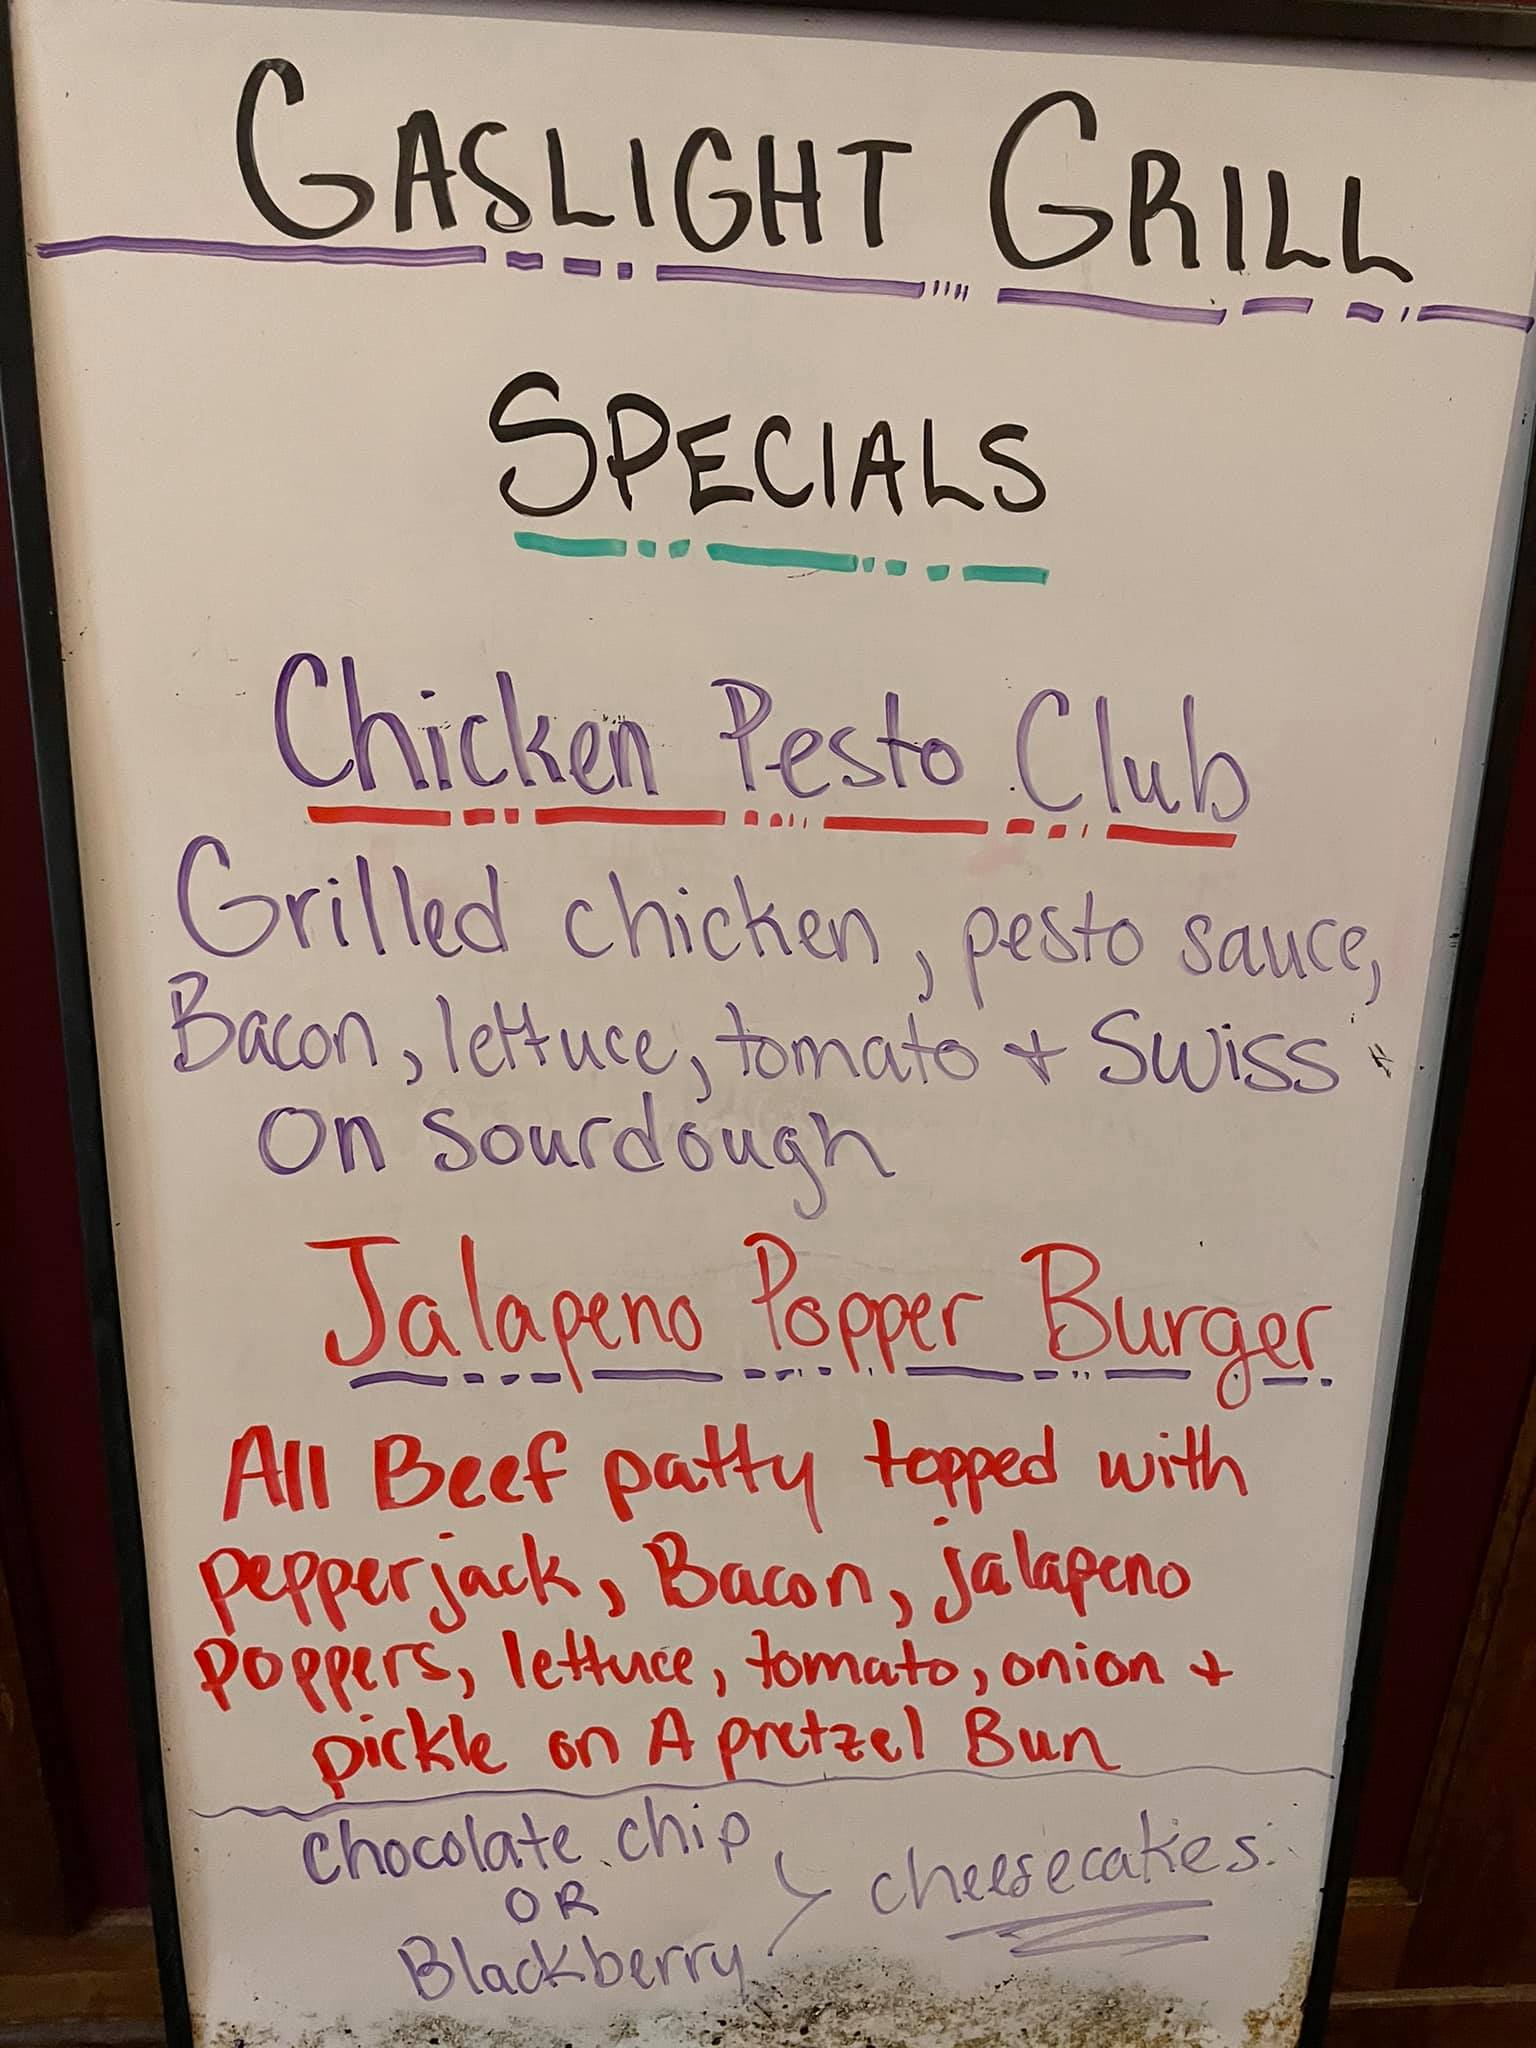 GASLIGHT GRILL
SPECIALS
Chicken Pesto Club
Grilled chicken, pesto sauce,
Bacon, lettuce, tomato + Swiss
On sourdough
Jalapeno Popper Burger
All Beef patty topped with
pepperjack, Bacon, jalapeno
poppers, lettuce, tomato, onion +
pickle on A pretzel Bun
Chocolate chip
OR
Blackberry
cheesecakes